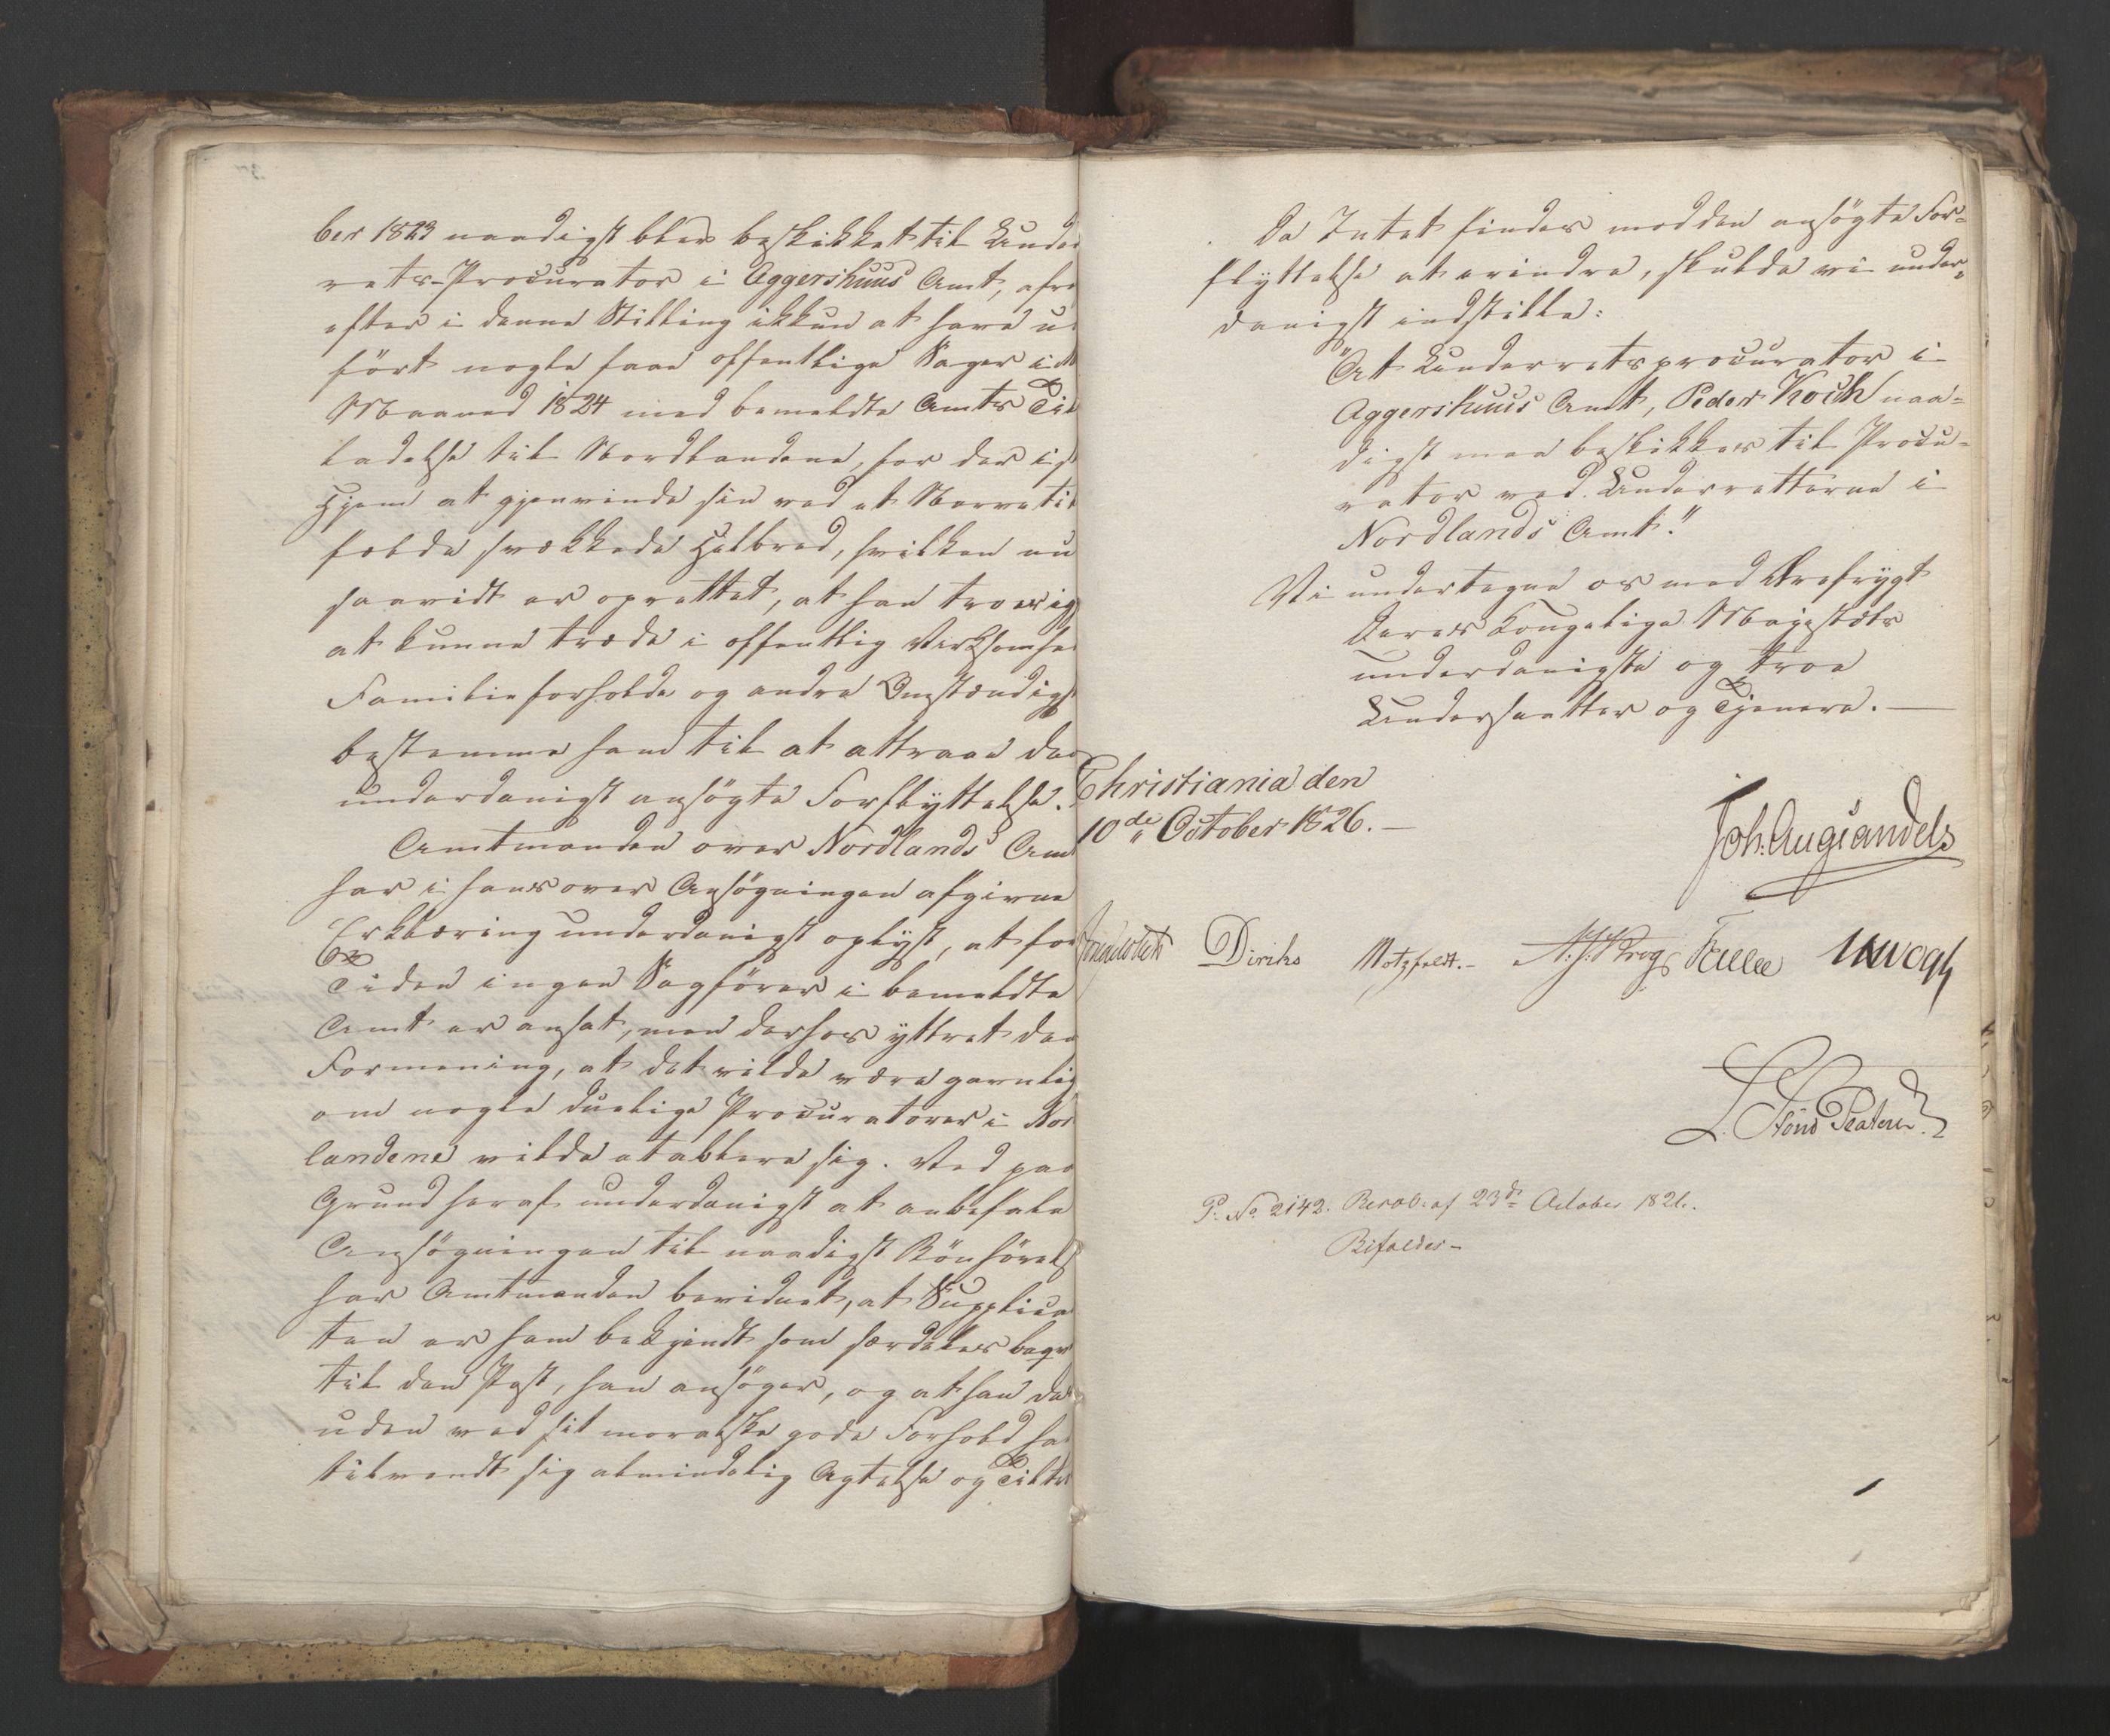 ber 1823 naadigst blev beskikket til Under
rets-Procurator i Aggershuus Amt,
efter i denne Stilling ikkun at have u
ført nogle faae offentlige Sager i
Maaned 1824 med bemeldte Amts Til
ladelse til Nordlandene, for der i s
Hjem at gjenvinde sin ved et Nervetil
fælde svækkede Helbred, hvilken nu
saavidt er oprettet, at han troer sig
at kunne træde i offentlig Virksomhe
Familieforholde og andre Omstændigh
bestemme ham til at attraae den
underdanigst ansøgte Forflyttelse.
Amtmanden over Nordlands Amt
har i hans over Ansøgningen afgivne
Erklæring underdanigst oplyst, at for
Tiden ingen Sagfører i bemeldte
Amt er ansat, men derhos yttret den
Formening, at det vilde være gavnlig
om nogle duelige Procuratorer i Nor
landene vilde etablere sig. Ved paa
Grund heraf underdanigst at anbefale
Ansøgningen til naadigst Bønhørels
har Amtmanden bevidnet, at Supplica
ten er ham bekjendt som særdeles beqv
til den Post, han ansøger, og at han des
uden ved sit moralske gode Forhold ha
tilvendt sig almindelig Agtelse og Tillid
Da Intet findes mod den ansøgte For-
flyttelse at erindre, skulde vi under-
danigst indstille:
"At Underretsprocurator i
Aggershuus Amt, Peder Koch naa-
digst maa beskikkes til Procu-
rator ved Underretterne i
Nordlands Amt."
Vi undertegne os med Ærefrygt
Deres Kongelige Majestæts
underdanigste og troe
Undersaatter og Tjenere.
Christiania den
10de October 1826.
Joh: Aug: Sandels
Diriks Motzfeldt. Krog
L. Stoud Platou
P. No. 2142. Resol: af 23de October 1826.
Bifaldes